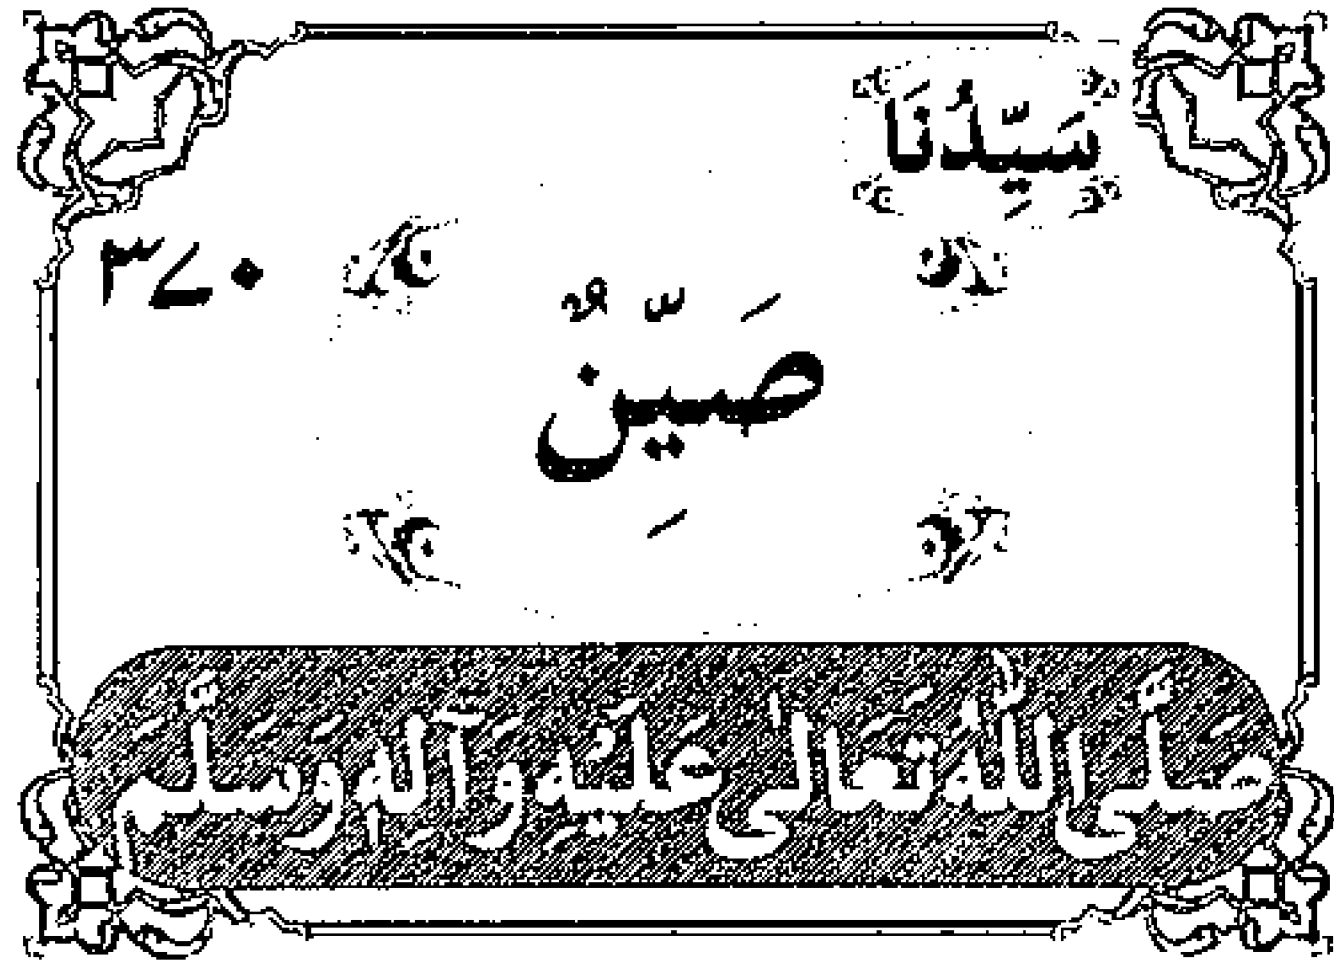 سَيِّدُنَا
۳۷۰
صَيِّنٌ
صَلَّى اللّٰهُ تَعَالٰى عَلَيْهِ وَآلِهٖ وَسَلَّمَ